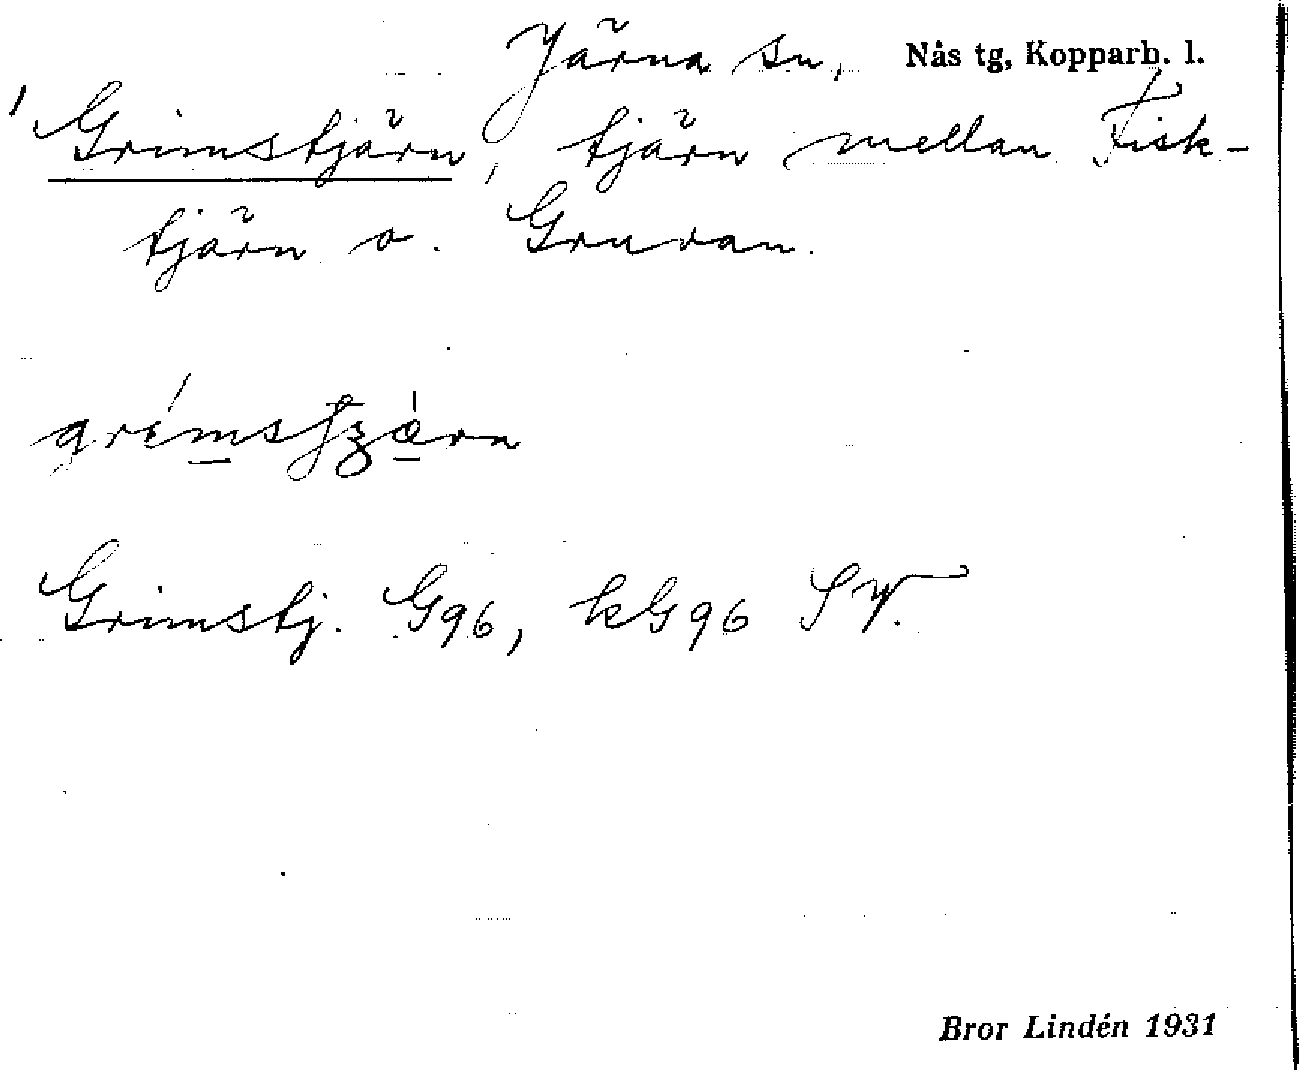 Järna sn, Nås tg, Kopparb. l.
Grimstjärn, tjärn mellan Fisk-
tjärn o. Gruvan.
Grimstj. G96, kG96 SV.
Bror Lindén 1931